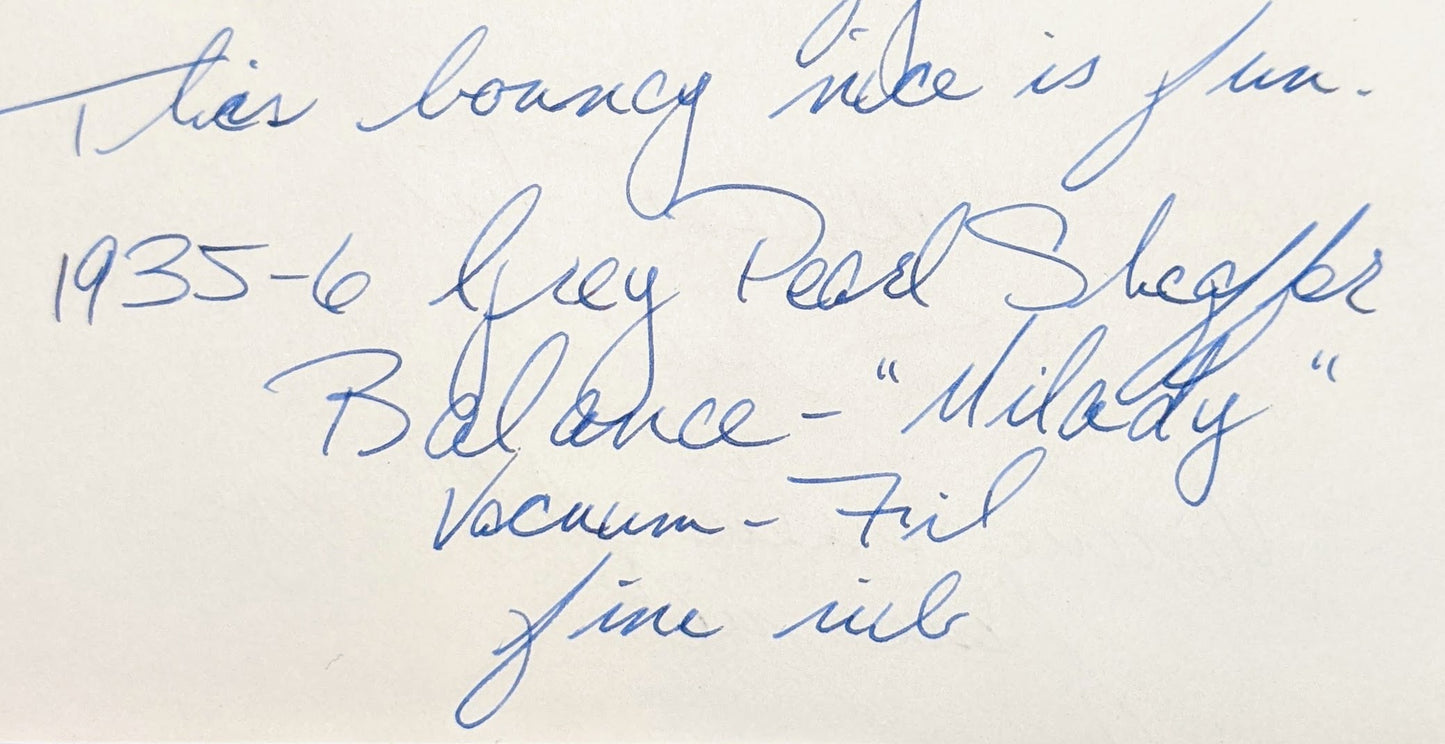 This bouncy is fun.
1935-6 Grey Pearl Sheaffer
Balance - "Milady"
Vacuum - Fil
fine nib